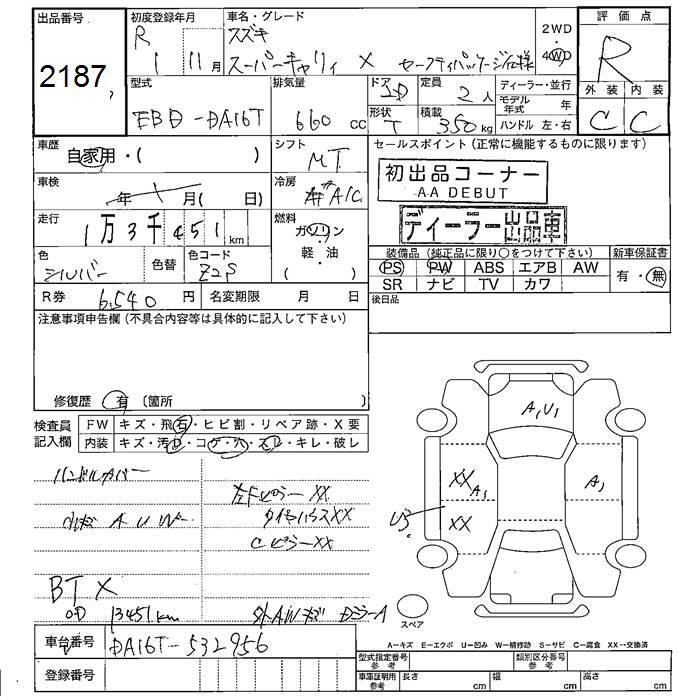 出品番号
2187
初度登録年月
R 1 11月
車名・グレード
スズキ
スーパーキャリィ X セーフティパッケージ仕様
2WD
4WD
評価点
R
外装 内装
C C
型式
EBD-DA16T
排気量
660 cc
ドア
2D
形状
T
定員
2人
積載
350kg
ディーラー・並行
モデル年式 年
ハンドル 左・右
車歴
自家用・( )
シフト
MT
セールスポイント(正常に機能するものに限ります)
初出品コーナー
AA DEBUT
ディーラー出品車
車検
年 月( 日)
冷房
A/C
走行
1万3千451km
燃料
ガソリン
軽・油
( )
色
シルバー
色替
色コード
Z2S
装備品(純正品に限り○をつけて下さい)
PS PW ABS エアB AW
SR ナビ TV カワ
新車保証書
有・無
R券 6,540円
名変期限 月 日
後日品
注意事項申告欄(不具合内容等は具体的に記入して下さい)
修復歴 有 〔箇所 〕
検査員記入欄
FW キズ・飛石・ヒビ割・リペア跡・X要
内装 キズ・汚・コゲ・穴・スレ・キレ・破レ
ハンドルカバー
A U W
左Fピラー XX
タイヤハウスXX
Cピラー XX
BT X
OD 13451km
外AWキズ DミラーA
A,U,
XX A,
XX
A,
U3
スペア
A=キズ E=エクボ U=凹み W=補修跡 S=サビ C=腐食 XX=交換済
車台番号
DA16T-532956
登録番号
型式指定番号 参考
類別区分番号 参考
車庫証明用 参考
長さ cm
幅 cm
高さ cm